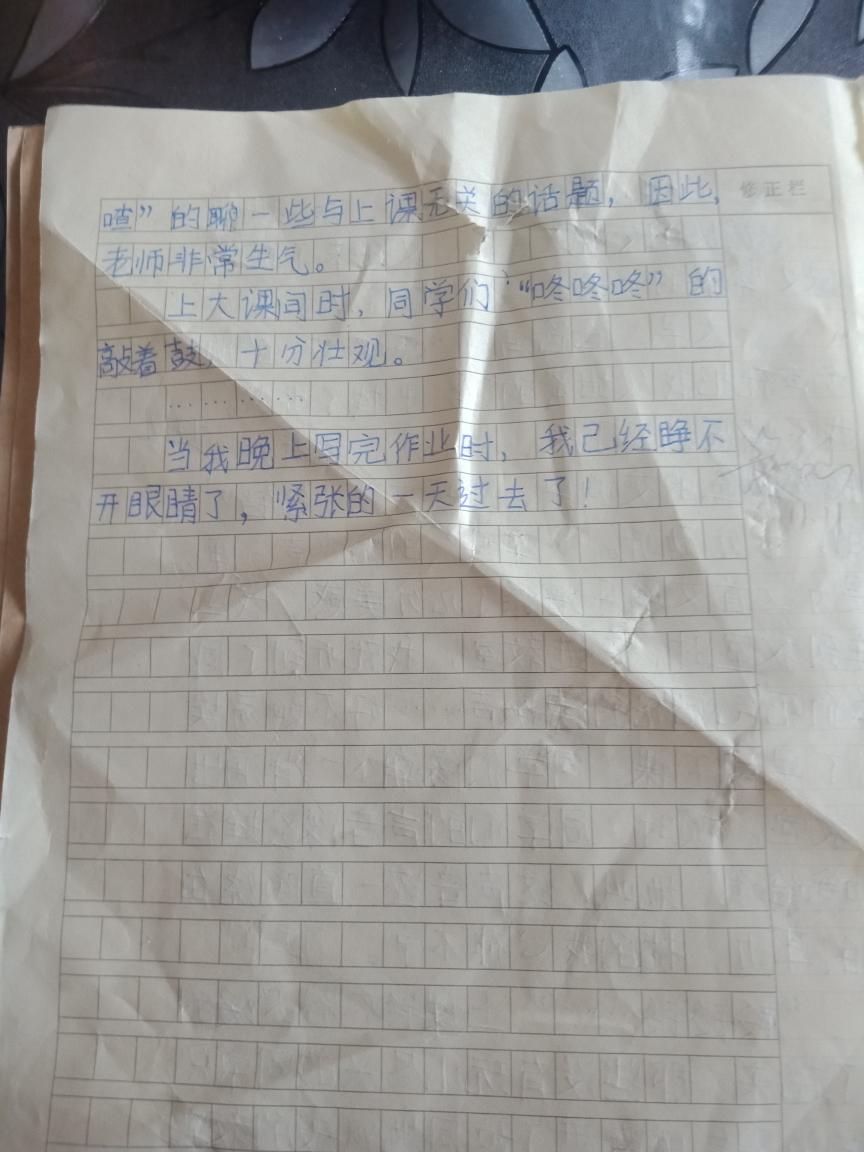 喳”的聊一些与上课无关的话题，因此，
修正栏
老师非常生气。
上大课间时，同学们“咚咚咚”的
敲着鼓，十分壮观。
…………
当我晚上写完作业时，我已经睁不
开眼睛了，紧张的一天过去了！